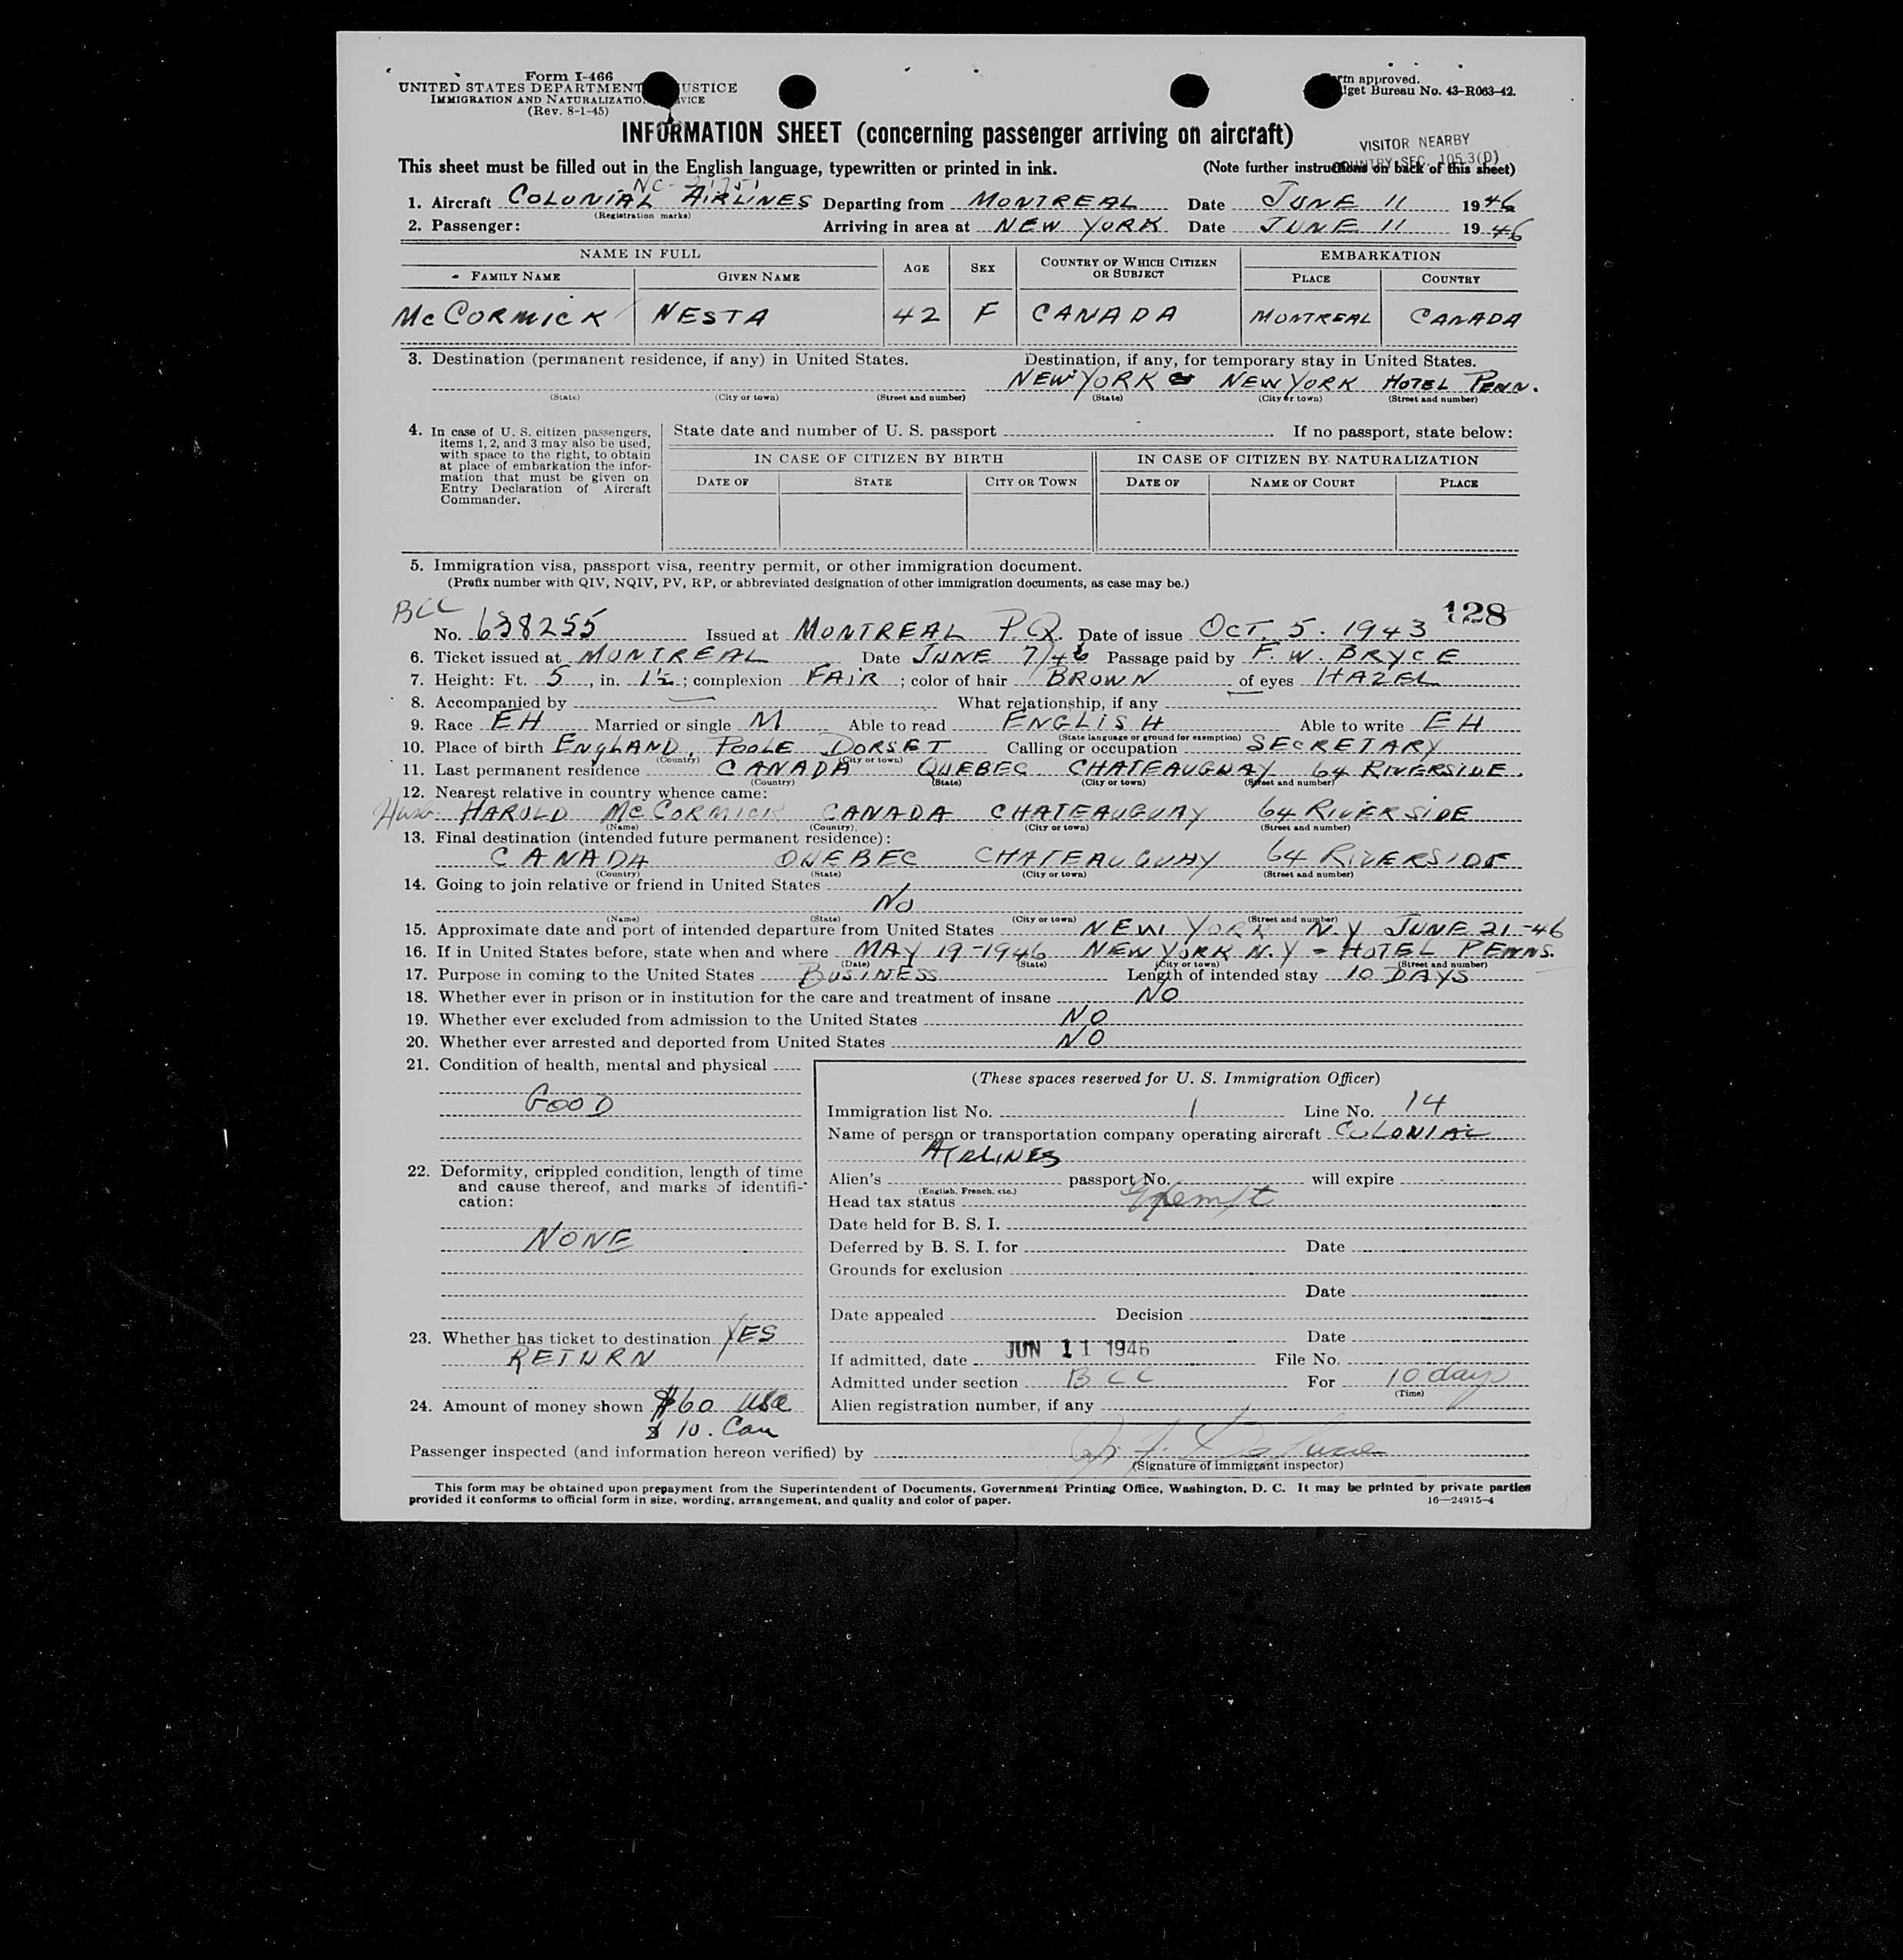 Form I-466
UNITED STATES DEPARTMENT USTICE
IMMIGRATION AND NATURALIZATIO VICE
(Rev. 8-1-45)
rm approved.
get Bureau No. 43-R063-42.
INFORMATION SHEET (concerning passenger arriving on aircraft)
VISITOR NEARBY
COUNTRY SEC. 105.3(D)
This sheet must be filled out in the English language, typewritten or printed in ink. (Note further instructions on back of this sheet)
1. Aircraft COLONIAL AIRLINES Departing from MONTREAL Date JUNE 11 1946
(Registration marks)
2. Passenger: Arriving in area at NEW YORK Date JUNE 11 1946
NAME IN FULL AGE SEX COUNTRY OF WHICH CITIZEN OR SUBJECT EMBARKATION
FAMILY NAME GIVEN NAME PLACE COUNTRY
McCORMICK NESTA 42 F CANADA MONTREAL CANADA
3. Destination (permanent residence, if any) in United States. Destination, if any, for temporary stay in United States.
NEW YORK NEW YORK HOTEL PENN.
(State) (City or town) (Street and number) (State) (City or town) (Street and number)
4. In case of U. S. citizen passengers, items 1, 2, and 3 may also be used, with space to the right, to obtain at place of embarkation the information that must be given on Entry Declaration of Aircraft Commander.
State date and number of U. S. passport If no passport, state below:
IN CASE OF CITIZEN BY BIRTH IN CASE OF CITIZEN BY NATURALIZATION
DATE OF STATE CITY OR TOWN DATE OF NAME OF COURT PLACE
5. Immigration visa, passport visa, reentry permit, or other immigration document.
(Prefix number with QIV, NQIV, PV, RP, or abbreviated designation of other immigration documents, as case may be.)
BCC 128
No. 638255 Issued at MONTREAL P.Q. Date of issue OCT. 5. 1943
6. Ticket issued at MONTREAL Date JUNE 7/46 Passage paid by F. W. BRYCE
7. Height: Ft. 5, in. 1½; complexion FAIR; color of hair BROWN of eyes HAZEL
8. Accompanied by — What relationship, if any
9. Race EH Married or single M Able to read ENGLISH Able to write EH
(State language or ground for exemption)
10. Place of birth ENGLAND, POOLE DORSET Calling or occupation SECRETARY
(Country) (City or town)
11. Last permanent residence CANADA QUEBEC CHATEAUGUAY 64 RIVERSIDE.
(Country) (State) (City or town) (Street and number)
12. Nearest relative in country whence came:
Husb HAROLD McCORMICK CANADA CHATEAUGUAY 64 RIVERSIDE
(Name) (Country) (City or town) (Street and number)
13. Final destination (intended future permanent residence):
CANADA QUEBEC CHATEAUGUAY 64 RIVERSIDE
(Country) (State) (City or town) (Street and number)
14. Going to join relative or friend in United States
NO
(Name) (State) (City or town) (Street and number)
15. Approximate date and port of intended departure from United States NEW YORK N.Y JUNE 21-46
16. If in United States before, state when and where MAY 19-1946 NEW YORK N.Y - HOTEL PENNS.
(Date) (State) (City or town) (Street and number)
17. Purpose in coming to the United States BUSINESS Length of intended stay 10 DAYS
18. Whether ever in prison or in institution for the care and treatment of insane NO
19. Whether ever excluded from admission to the United States NO
20. Whether ever arrested and deported from United States NO
21. Condition of health, mental and physical
GOOD
22. Deformity, crippled condition, length of time and cause thereof, and marks of identification:
NONE
23. Whether has ticket to destination YES
RETURN
24. Amount of money shown $60 USA
$10. Can
(These spaces reserved for U. S. Immigration Officer)
Immigration list No. 1 Line No. 14
Name of person or transportation company operating aircraft COLONIAL
AIRLINES
Alien's passport No. will expire
(English, French, etc.)
Head tax status Exempt
Date held for B. S. I.
Deferred by B. S. I. for Date
Grounds for exclusion
Date
Date appealed Decision
Date
If admitted, date JUN 11 1946 File No.
Admitted under section BCC For 10 days
(Time)
Alien registration number, if any
Passenger inspected (and information hereon verified) by
(Signature of immigrant inspector)
This form may be obtained upon prepayment from the Superintendent of Documents, Government Printing Office, Washington, D. C. It may be printed by private parties
provided it conforms to official form in size, wording, arrangement, and quality and color of paper. 16—24915-4